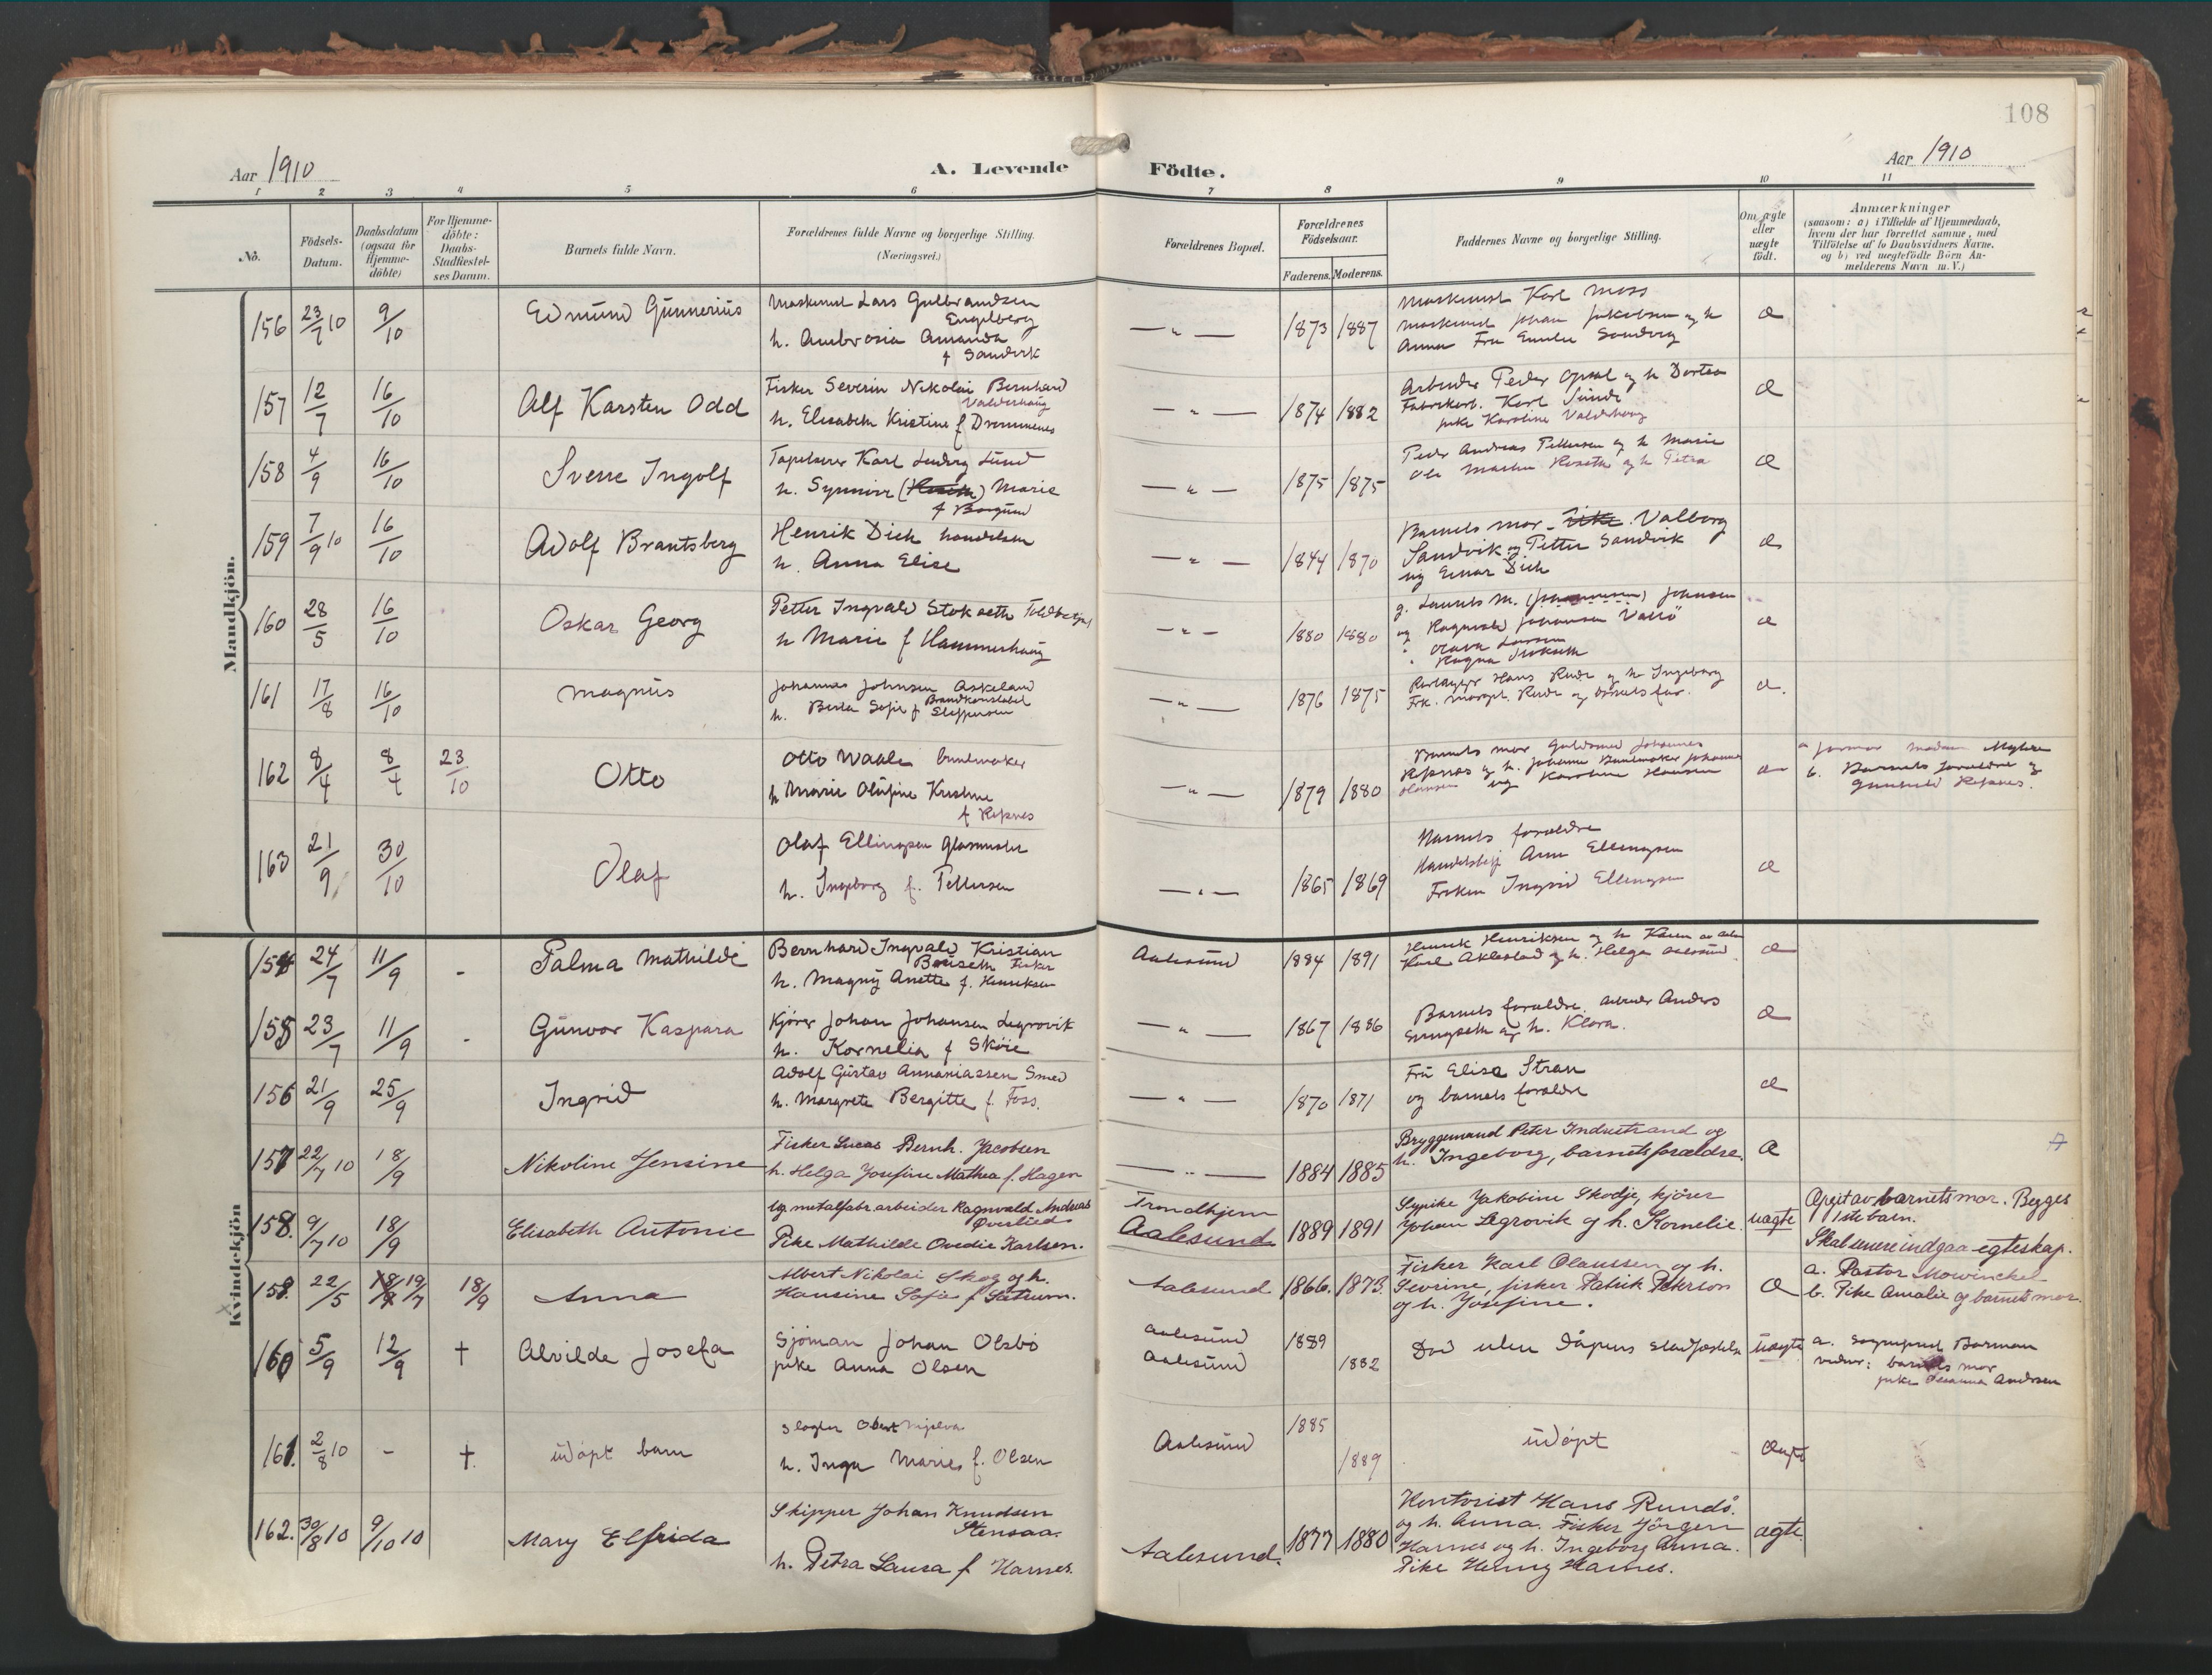 108
Aar 1910
A. Levende Födte.
Aar 1910
1 2 3 4 5 6 7 8 9 10 11
No.
Födsels-Datum.
Daabsdatum (ogsaa for Hjemme-döbte)
For Hjemme-döbte: Daabs-Stadfæstel-ses Datum.
Barnets fulde Navn.
Forældrenes fulde Navne og borgerlige Stilling. (Næringsvei.)
Forældrenes Bopæl.
Forældrenes Födselsaar.
Faderens. Moderens.
Faddernes Navne og borgerlige Stilling.
Om ægte eller uægte födt.
Anmærkninger
(saasom: a) i Tilfælde af Hjemmedaab, hvem der har forrettet samme, med Tilföielse af to Daabsvidners Navne. og b) ved uægtefödte Börn An-melderens Navn m. V.)
Mandkjön.
156 23/7 10 9/10 Edmund Gunnerius Maskinist Lars Gulbrandsen
Engelberg
h. Ambrosia Amanda
f Sandvik
— " — 1873 1887 Maskinist Karl Moss
Maskinist Johan Jakobsen og h
Anna Fru Emilie Sandvig
æ
157 12/7 16/10 Alf Karsten Odd Fisker Severin Nikolai Bernhard
Valderhaug
h. Elisabeth Kristine f Drommenes
— " — 1874 1882 Arbeider Peder Opsal og h Dortea
Fabrikarb. Karl Sunde
pike Karoline Valderhaug
æ
158 4/9 16/10 Sverre Ingolf Tapetserer Karl Ludvig Lund
h. Synnøve Marie
f Borgund
— " — 1875 1875 Peder Andreas Pettersen og h Marie
Ole Martin Roseth og h Petra
æ
159 7/9 10 16/10 Adolf Brantsberg Henrik Dick handelsm
h. Anna Elise
— " — 1844 1870 Barnets mor Valborg
Sandvik og Petter Sandvik
og Einar Dick
æ
160 28/5 16/10 Oskar Georg Petter Ingvald Stokseth Toldbetjent
h Marie f Hammerhaug
— " — 1880 1880 g. Laurits M. Johansen
og Ragnvald Johansen Valö
Larsen
Ragna
æ
161 17/8 16/10 Magnus Johannes Johnsen Askeland
Brandkonstabel
h. Berta Sofie f Steffensen
— " — 1876 1875 Hans Rude og h Ingeborg
Frk. Margit Rude og barnets far.
æ.
162 8/4 8/4 23/10 Otto Otto Waale buntmaker
h Marie Olufine Kristine
f Refsnes
— " — 1879 1880 Barnets mor Guldsmed Johannes
Refsnes og h. Johanne Buntmaker Johannes
Hansen og Karoline Hansen
æ a farmor madam Myhre
b. Barnets forældre og
Gunhild Refsnes.
163 21/9 30/10 Olaf Olaf Ellingsen Glasmester
h. Ingeborg f. Pettersen
— " — 1865 1869 Barnets forældre
Handelsbetj Arne Ellingsen
Frøken Ingrid Ellingsen
æ
Kvindekjön
154 24/7 11/9 - Palma Mathilde Bernhard Ingvald Kristian
Fisker
h. Magny Anette f. Henriksen
Aalesund 1884 1891 Henrik Henriksen og h Karen
Karl Aklestad og h. Helga Aalesund
æ
155 23/7 11/9 - Gunvor Kaspara Kjører Johan Johansen Legrovik
h. Kornelia f Skøie
— " — 1867 1886 Barnets forældre. Arbeider Anders
og h. Klara.
æ
156 21/9 25/9 Ingrid Adolf Gustav Annaniassen Smed
h. Margrete Bergitte f. Foss.
— " — 1870 1871 Fru Elise Strøm
og barnets forældre
æ
157 22/7 10 18/9 Nikoline Jensine Fisker Lucas Bernh. Jacobsen
h. Helga Josefine Mathea f. Hagen
— " — 1884 1885 Bryggemand Peter Indrestrand og
h. Ingeborg, barnets forældre.
æ
158. 9/7 10 18/9 Elisabeth Antonie Ug metalfabr.arbeider Ragnvald Andreas
Øverlied
Pike Mathilde Ovedie Karlsen.
Trondhjem
Aalesund 1889 1891 Sypike Jakobine Skodje, kjører
Johan Legrovik og h. Kornelie.
uægte Opgit av barnets mor. Begges
1ste barn.
Skal senere indgaa egteskap.
159. 22/5 18/9 19/7 18/9 Anna Albert Nikolai Skog og h.
Hansine Sofie f Sætrum.
Aalesund 1866. 1873. Fisker Karl Olaussen og h.
Sevrine, fisker Patrik Peterson
og h. Josefine.
æ a. Pastor Mowinckel
b. Pike Amalie og barnets mor.
160 5/9 12/9 † Alvilde Josefa Sjöman Johan Olsbö
pike Anna Olsen
Aalesund 1889
Aalesund 1882 Död uten dåpens stadfæstelse
uægte a. Sogneprest Barman
vidner: barnets mor
pike Susanna Andersen
161. 2/8 10 - † udöpt barn Slagter Obert Mjelva
h. Inga Marie f. Olsen
Aalesund 1885 1889 udöpt
ægte
162. 30/8 10 9/10 10 Mary Elfrida Skipper Johan Knudsen
Stensaa.
h. Petra Laura f Harnes.
Aalesund. 1877 1880 Kontorist Hans Rundö.
og h. Anna. Fisker Jörgen
Harnes og h. Ingeborg Anna.
Pike Henny Harnes.
ægte